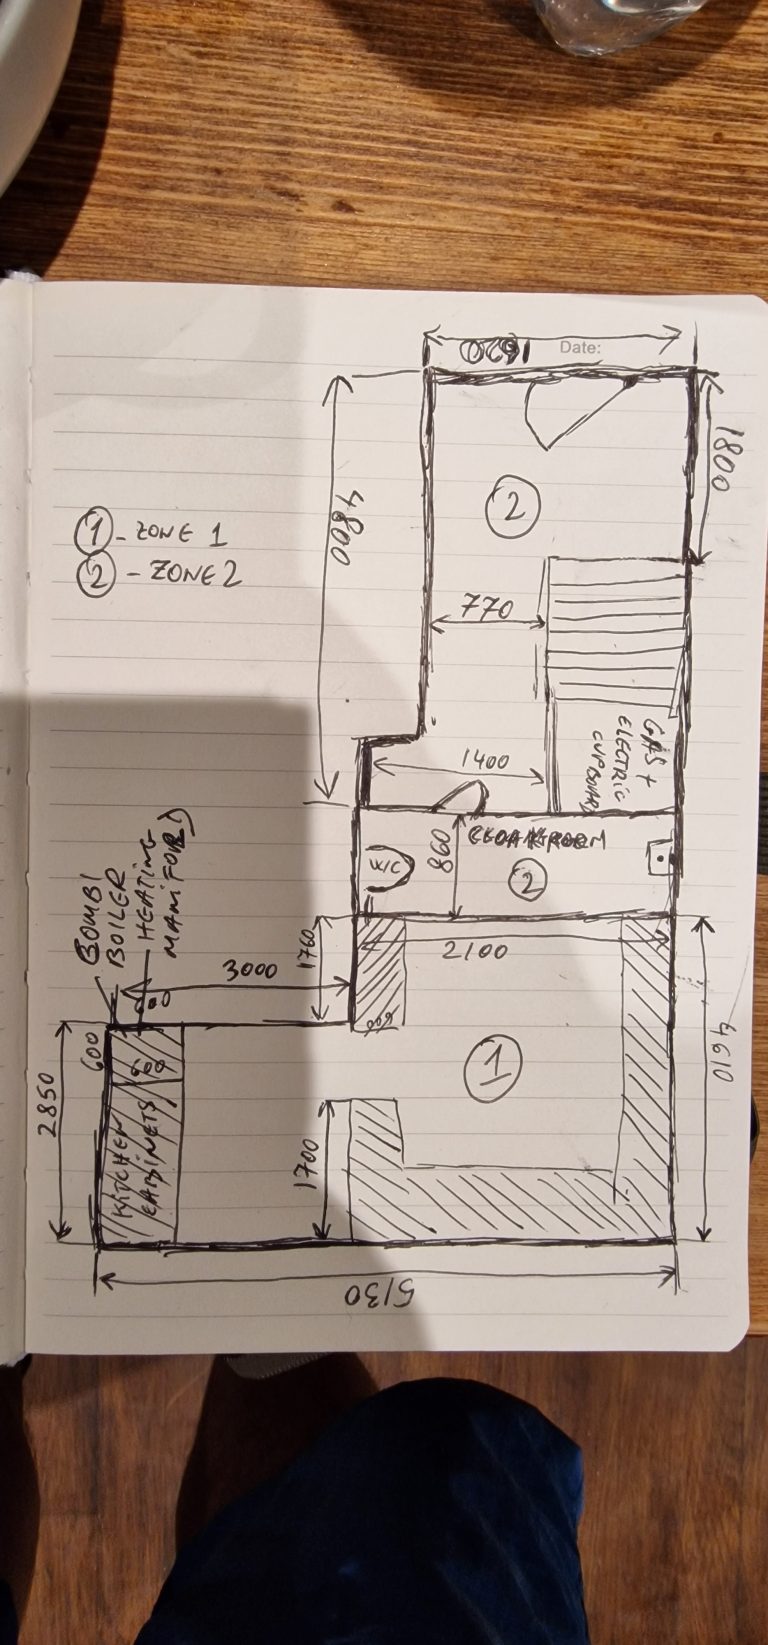 Date:
1620
1800
4800
2
① - ZONE 1
② - ZONE 2
770
GAS +
ELECTRIC
CUPBOARD
1400
CLOAKROOM
860
W/C
2
BOMBI
BOILER
HEATING
MANIFORD
1760
2100
3000
600
600
1
4610
2850
KITCHEN
CABINETS
1700
5130